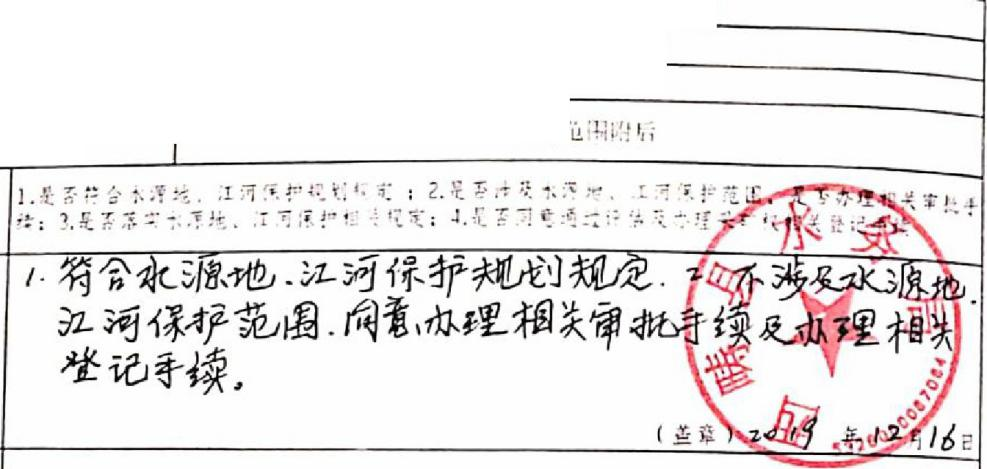 范围附后
1.是否符合水源地、江河保护规划规定；2.是否涉及水源地、江河保护范围，是否办理相关审批手
续；3.是否落实水源地、江河保护相关规定；4.是否同意通过评估及办理 相关登记手续
1. 符合水源地、江河保护规划规定. 2. 不涉及水源地、
江河保护范围.同意办理相关审批手续及办理相关
登记手续。
(盖章) 2019 年 12月16日
县水务局